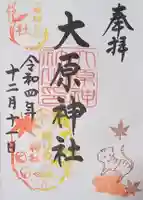 奉拝
大原神社
令和四年
十二月十一日